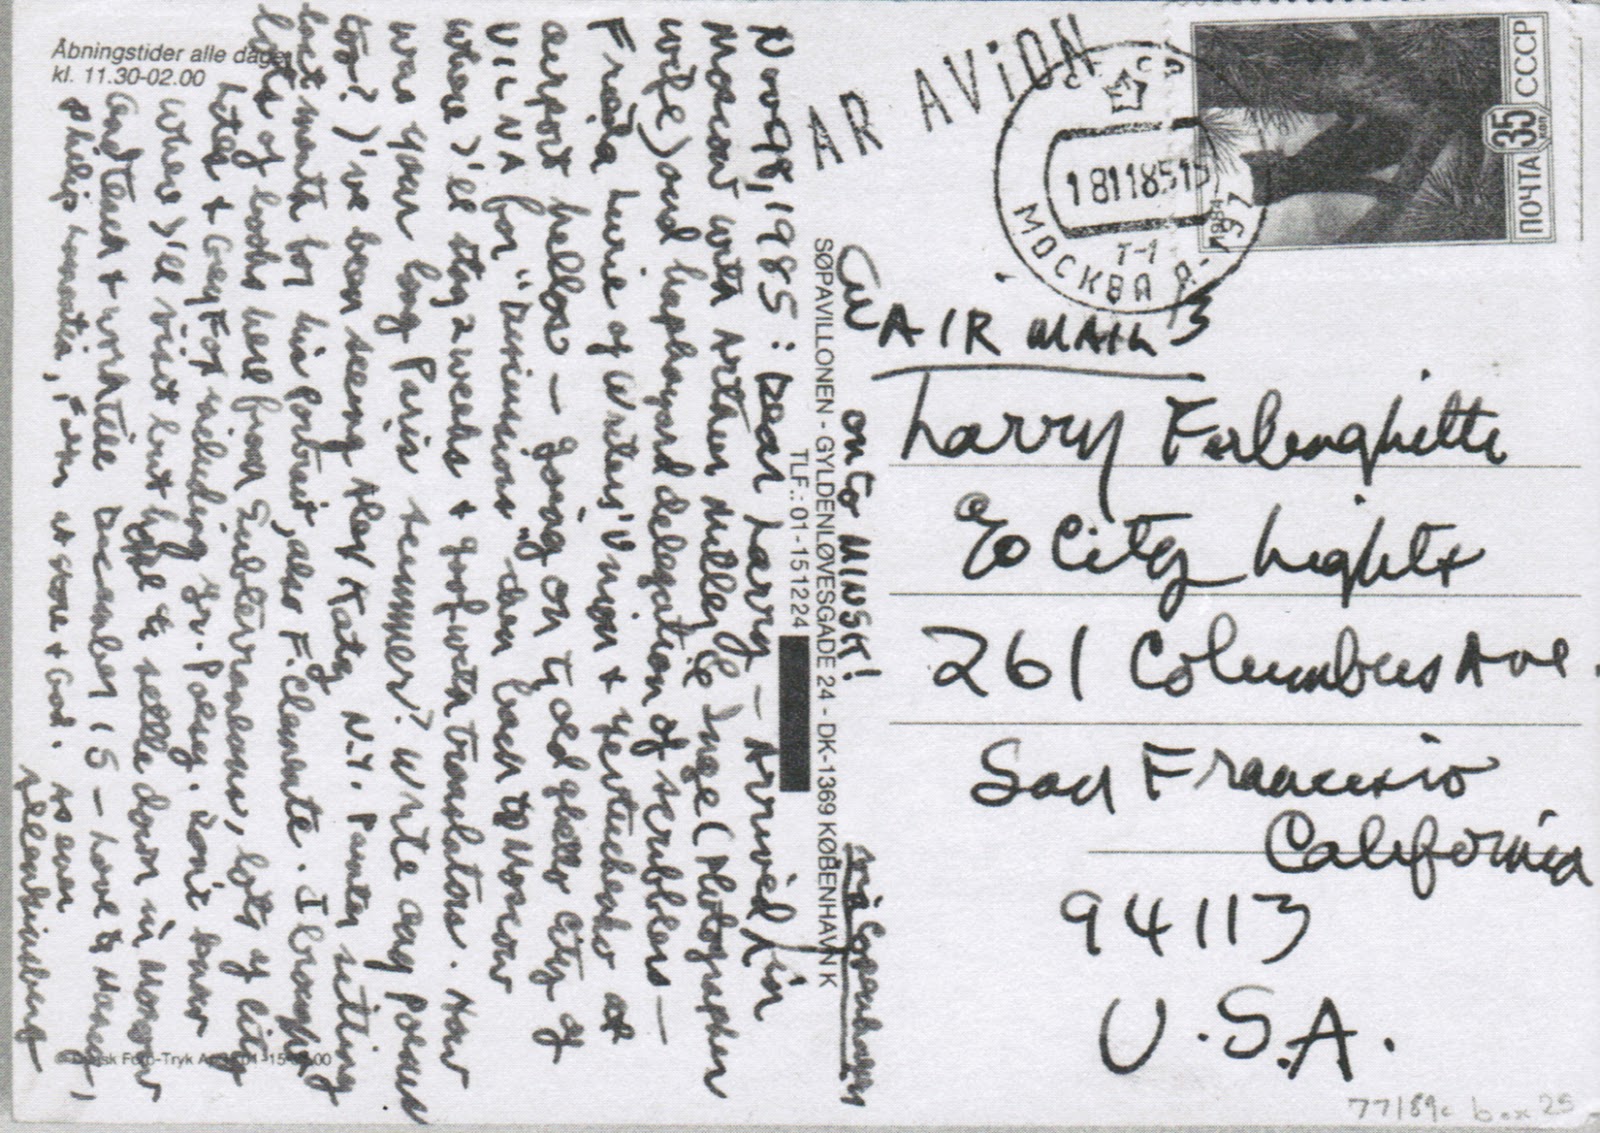 Åbningstider alle dage
kl. 11.30-02.00
Nov 98, 1985: Dear Larry – Arrived in
Moscow with Arthur Miller (& Inge (Photographer
wife) and haphazard delegation of scribblers –
Frieda Lurie of Writers' Union & Yevtushenko at
airport hellos – going on to old ghetto City of
VILNA for "Discussions" then back to Moscow
where I'll stay 2 weeks & goof with translators. How
was your long Paris summer? Write any poems
too? I've been seeing Alex Katz N.Y. Painter sitting
last month for his portrait, also F. Clemente. I brought
lots of books here from Subterraneans, lots of City
Lites & Grey Fox including Gr. Poesy. Don't know
who I'll visit but hope to settle down in Moscow
and teach & work till December 15 – Love to Nancy,
Philip Lamantia, at store & God. As ever
Allen Ginsberg
© Dansk Foto-Tryk
SØPAVILLONEN - GYLDENLØVESGADE 24 - DK-1369 KØBENHAVN K
TLF.: 01-151224
on to MINSK!
via Copenhagen
PAR AVION
СССР
18118515
Т-1
МОСКВА
ПОЧТА 35 коп СССР
1984
AIR MAIL
Larry Ferlenghitti
c/o City Lights
261 Columbus Ave.
San Francisco
California
94113
U.S.A.
77/89c box 25